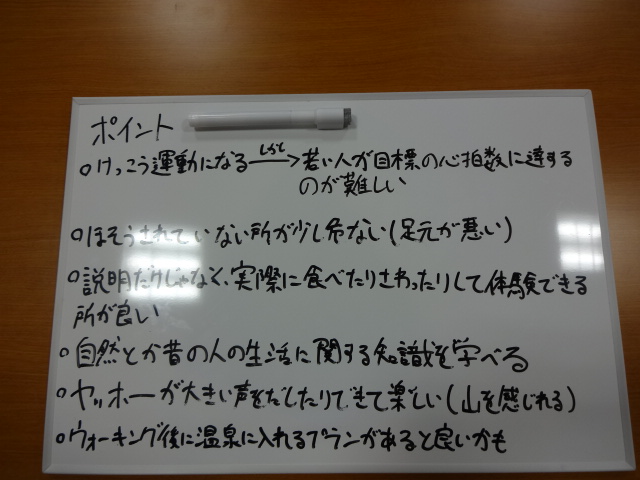 ポイント
○けっこう運動になる しかし→ 若い人が目標の心拍数に達する
のが難しい
○ほそうされていない所が少し危ない(足元が悪い)
○説明だけじゃなく、実際に食べたりさわったりして体験できる
所が良い
○自然とか昔の人の生活に関する知識を学べる
○ヤッホーが大きい声をだしたりできて楽しい(山を感じれる)
○ウォーキング後に温泉に入れるプランがあると良いかも